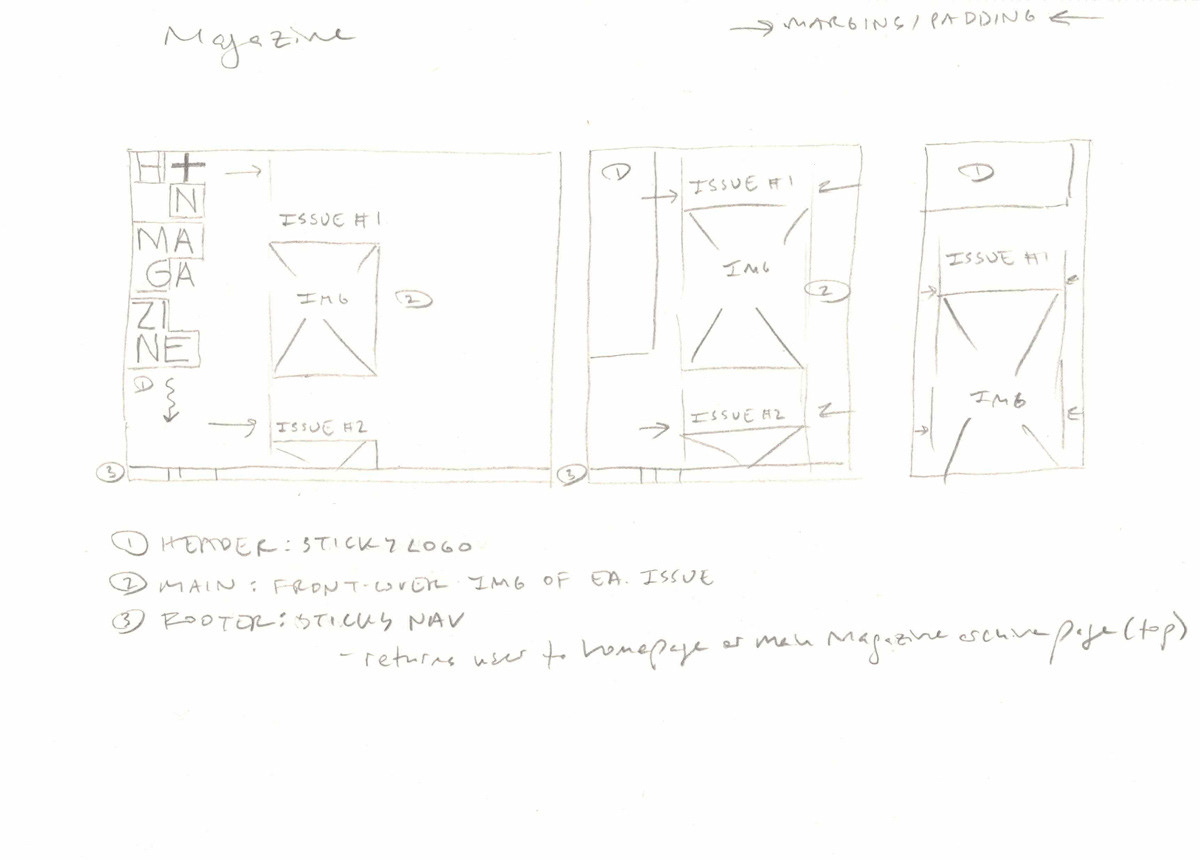 Magazine
→ MARGINS/PADDING ←
H+
N
MA
GA
ZI
NE
1
ISSUE #1
IMG
2
ISSUE #2
3
1
ISSUE #1
IMG
2
ISSUE #2
3
1
ISSUE #1
IMG
1 HEADER: STICKY LOGO
2 MAIN: FRONT-COVER IMG OF EA. ISSUE
3 FOOTER: STICKY NAV
- returns user to homepage or main Magazine archive page (top)